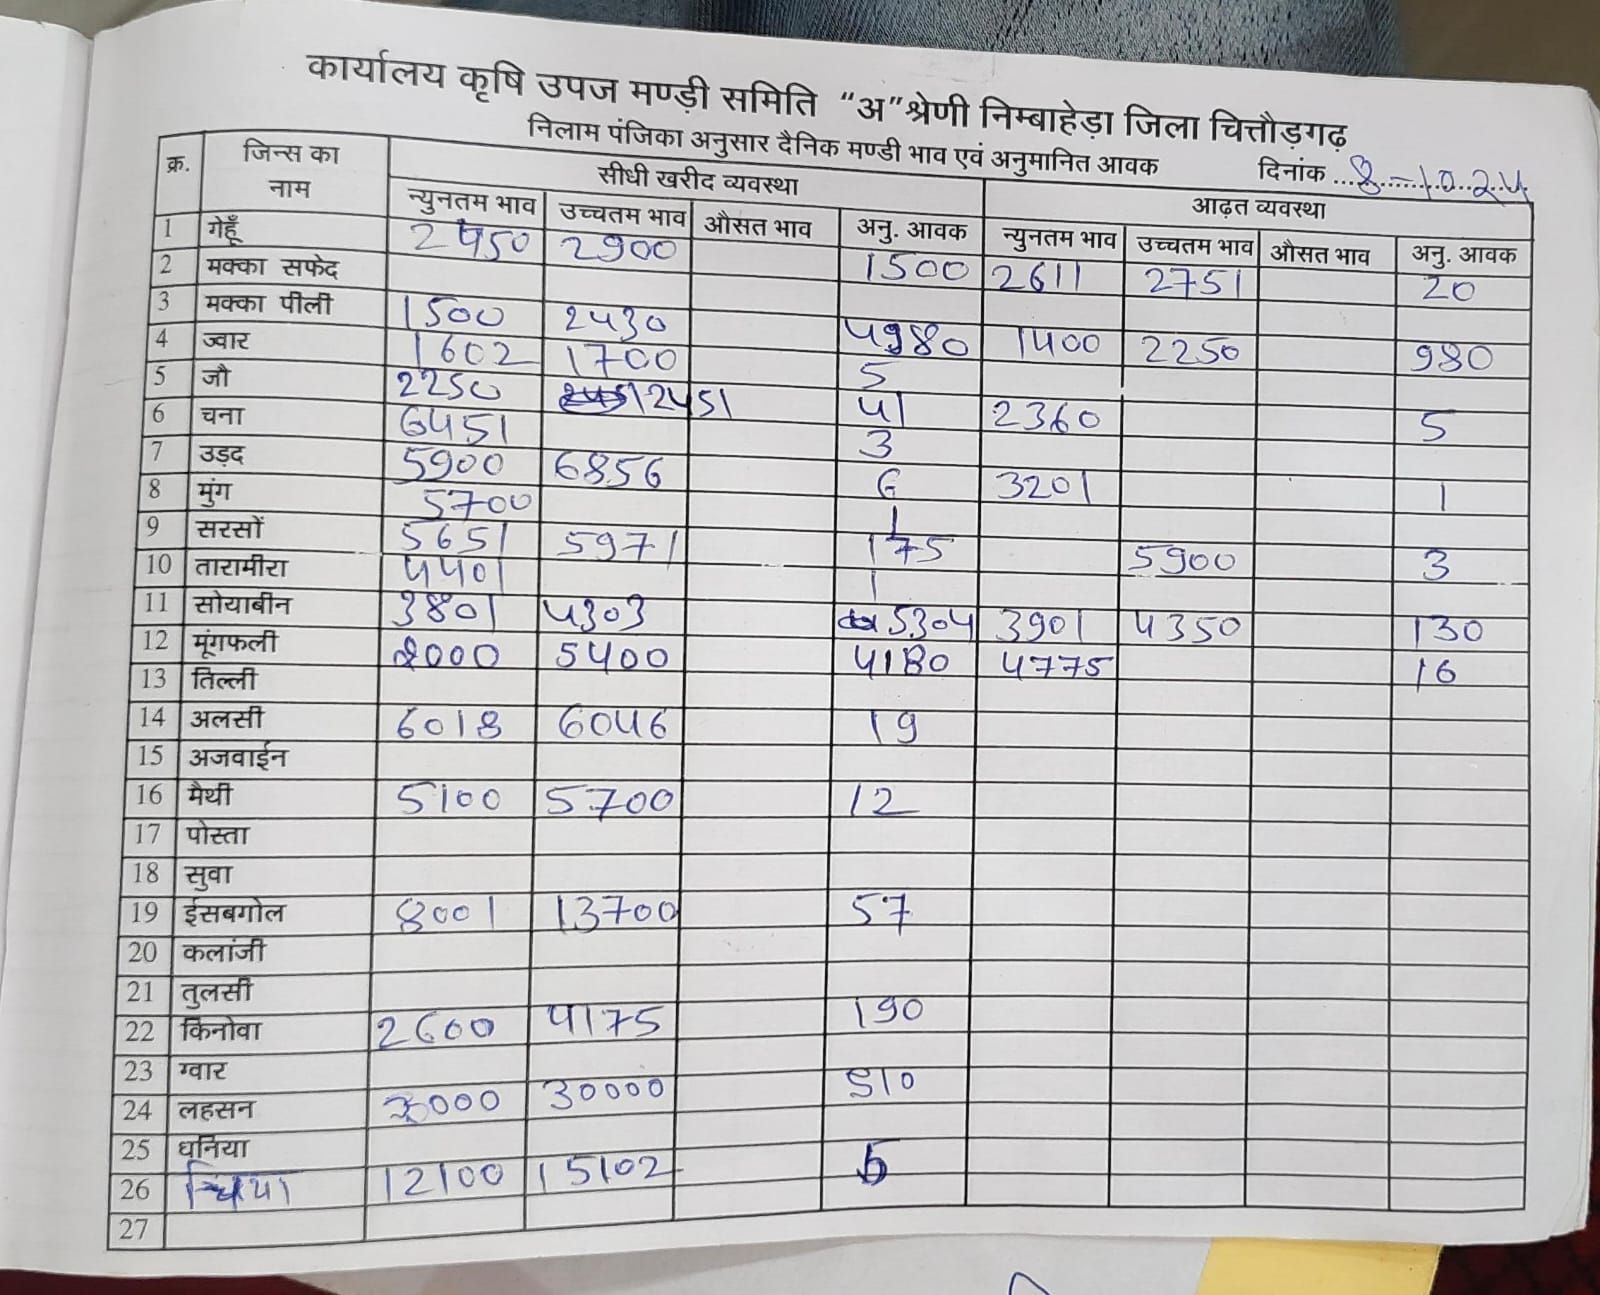 कार्यालय कृषि उपज मण्ड़ी समिति “अ” श्रेणी निम्बाहेड़ा जिला चित्तौड़गढ़
निलाम पंजिका अनुसार दैनिक मण्डी भाव एवं अनुमानित आवक दिनांक ...8-10.24
क्र. जिन्स का नाम सीधी खरीद व्यवस्था आढ़त व्यवस्था
न्युनतम भाव उच्चतम भाव औसत भाव अनु. आवक न्युनतम भाव उच्चतम भाव औसत भाव अनु. आवक
1 गेहूँ 2450 2900 1500 2611 2751 20
2 मक्का सफेद
3 मक्का पीली 1500 2430 4980 1400 2250 980
4 ज्वार 1602 1700 5
5 जौ 2250 2451 41 2360 5
6 चना 6451 3
7 उड़द 5900 6856 6 3201 1
8 मुंग 5700 1
9 सरसों 5651 5971 175 5900 3
10 तारामीरा 4401 1
11 सोयाबीन 3801 4303 5304 3901 4350 130
12 मूंगफली 2000 5400 4180 4775 16
13 तिल्ली
14 अलसी 6018 6046 19
15 अजवाईन
16 मैथी 5100 5700 12
17 पोस्ता
18 सुवा
19 ईसबगोल 8001 13700 57
20 कलांजी
21 तुलसी
22 किनोवा 2600 4175 190
23 ग्वार
24 लहसन 30000 510
25 धनिया
26 चिया 12100 15102
27